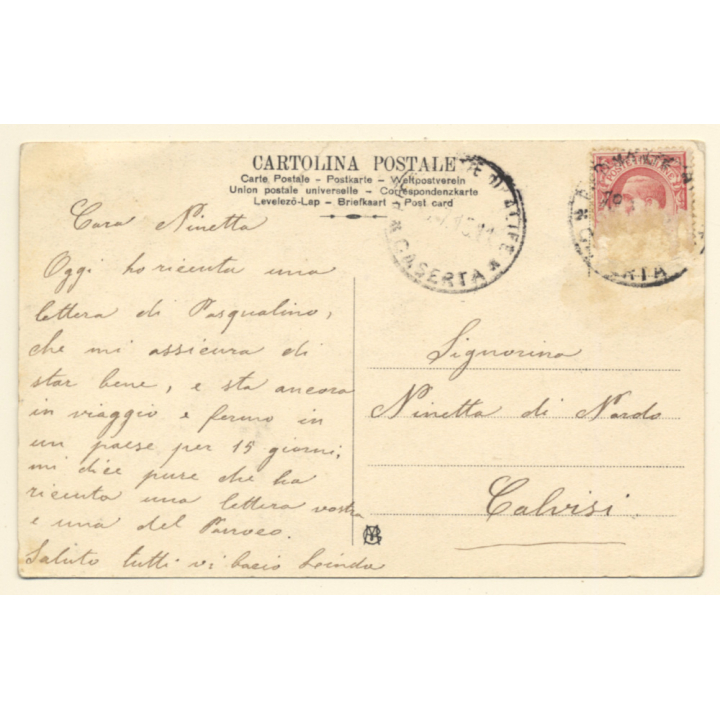 CARTOLINA POSTALE
Carte Postale - Postkarte - Weltpostverein
Union postale universelle - Correspondenzkarte
Levelező-Lap - Briefkaart - Post card
D'ALIFE
CASERTA
Cara Ninetta
Oggi ho ricevuta una
lettera di Pasqualino,
che mi assicura di
star bene, e sta ancora
in viaggio e fermo in
un paese per 15 giorni,
mi dice pure che ha
ricevuta una lettera vostra
e una del Parroco.
Saluto tutti vi bacio
Signorina
Ninetta di Nardo
Calvisi.